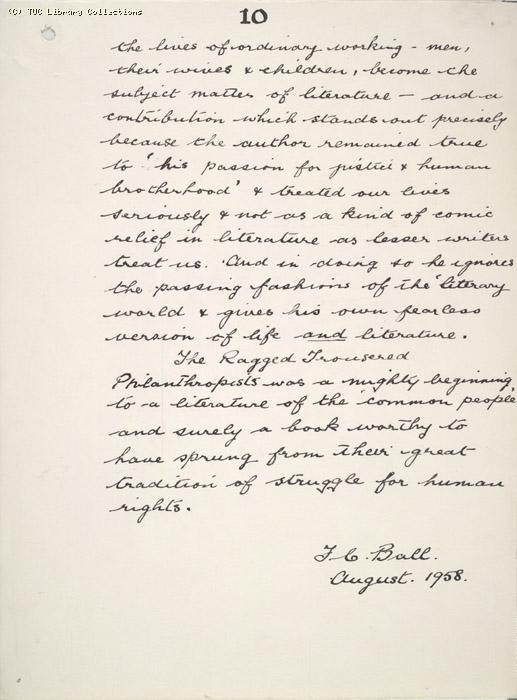 (C) TUC Library Collections
10
the lives of ordinary working - men,
their wives & children, become the
subject matter of literature — and a
contribution which stands out precisely
because the author remained true
to 'his passion for justice & human
brotherhood' & treated our lives
seriously & not as a kind of comic
relief in literature as lesser writers
treat us. And in doing so he ignores
the passing fashions of the 'literary
world & gives his own fearless
version of life and literature.
The Ragged Trousered
Philanthropists was a mighty beginning,
to a literature of the common people
and surely a book worthy to
have sprung from their great
tradition of struggle for human
rights.
F. C. Ball.
August. 1958.